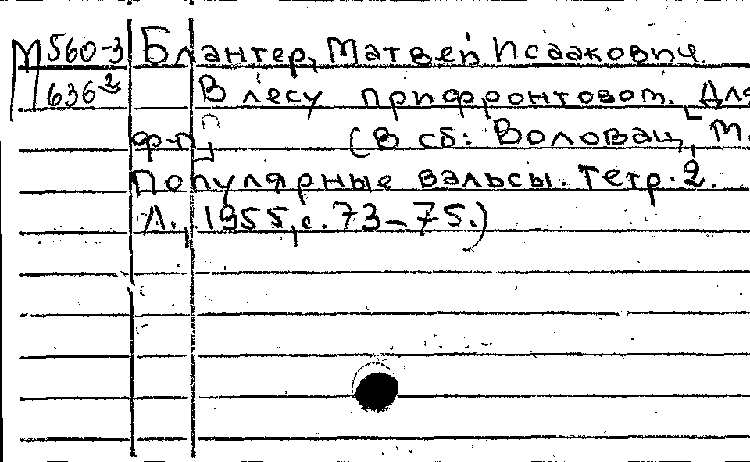 М 560-3 Блантер, Матвей Исаакович.
636² В лесу прифронтовом. [Для
ф-п.] (В сб: Воловац, М.
Популярные вальсы. Тетр. 2.
Л., 1955, с. 73-75.)